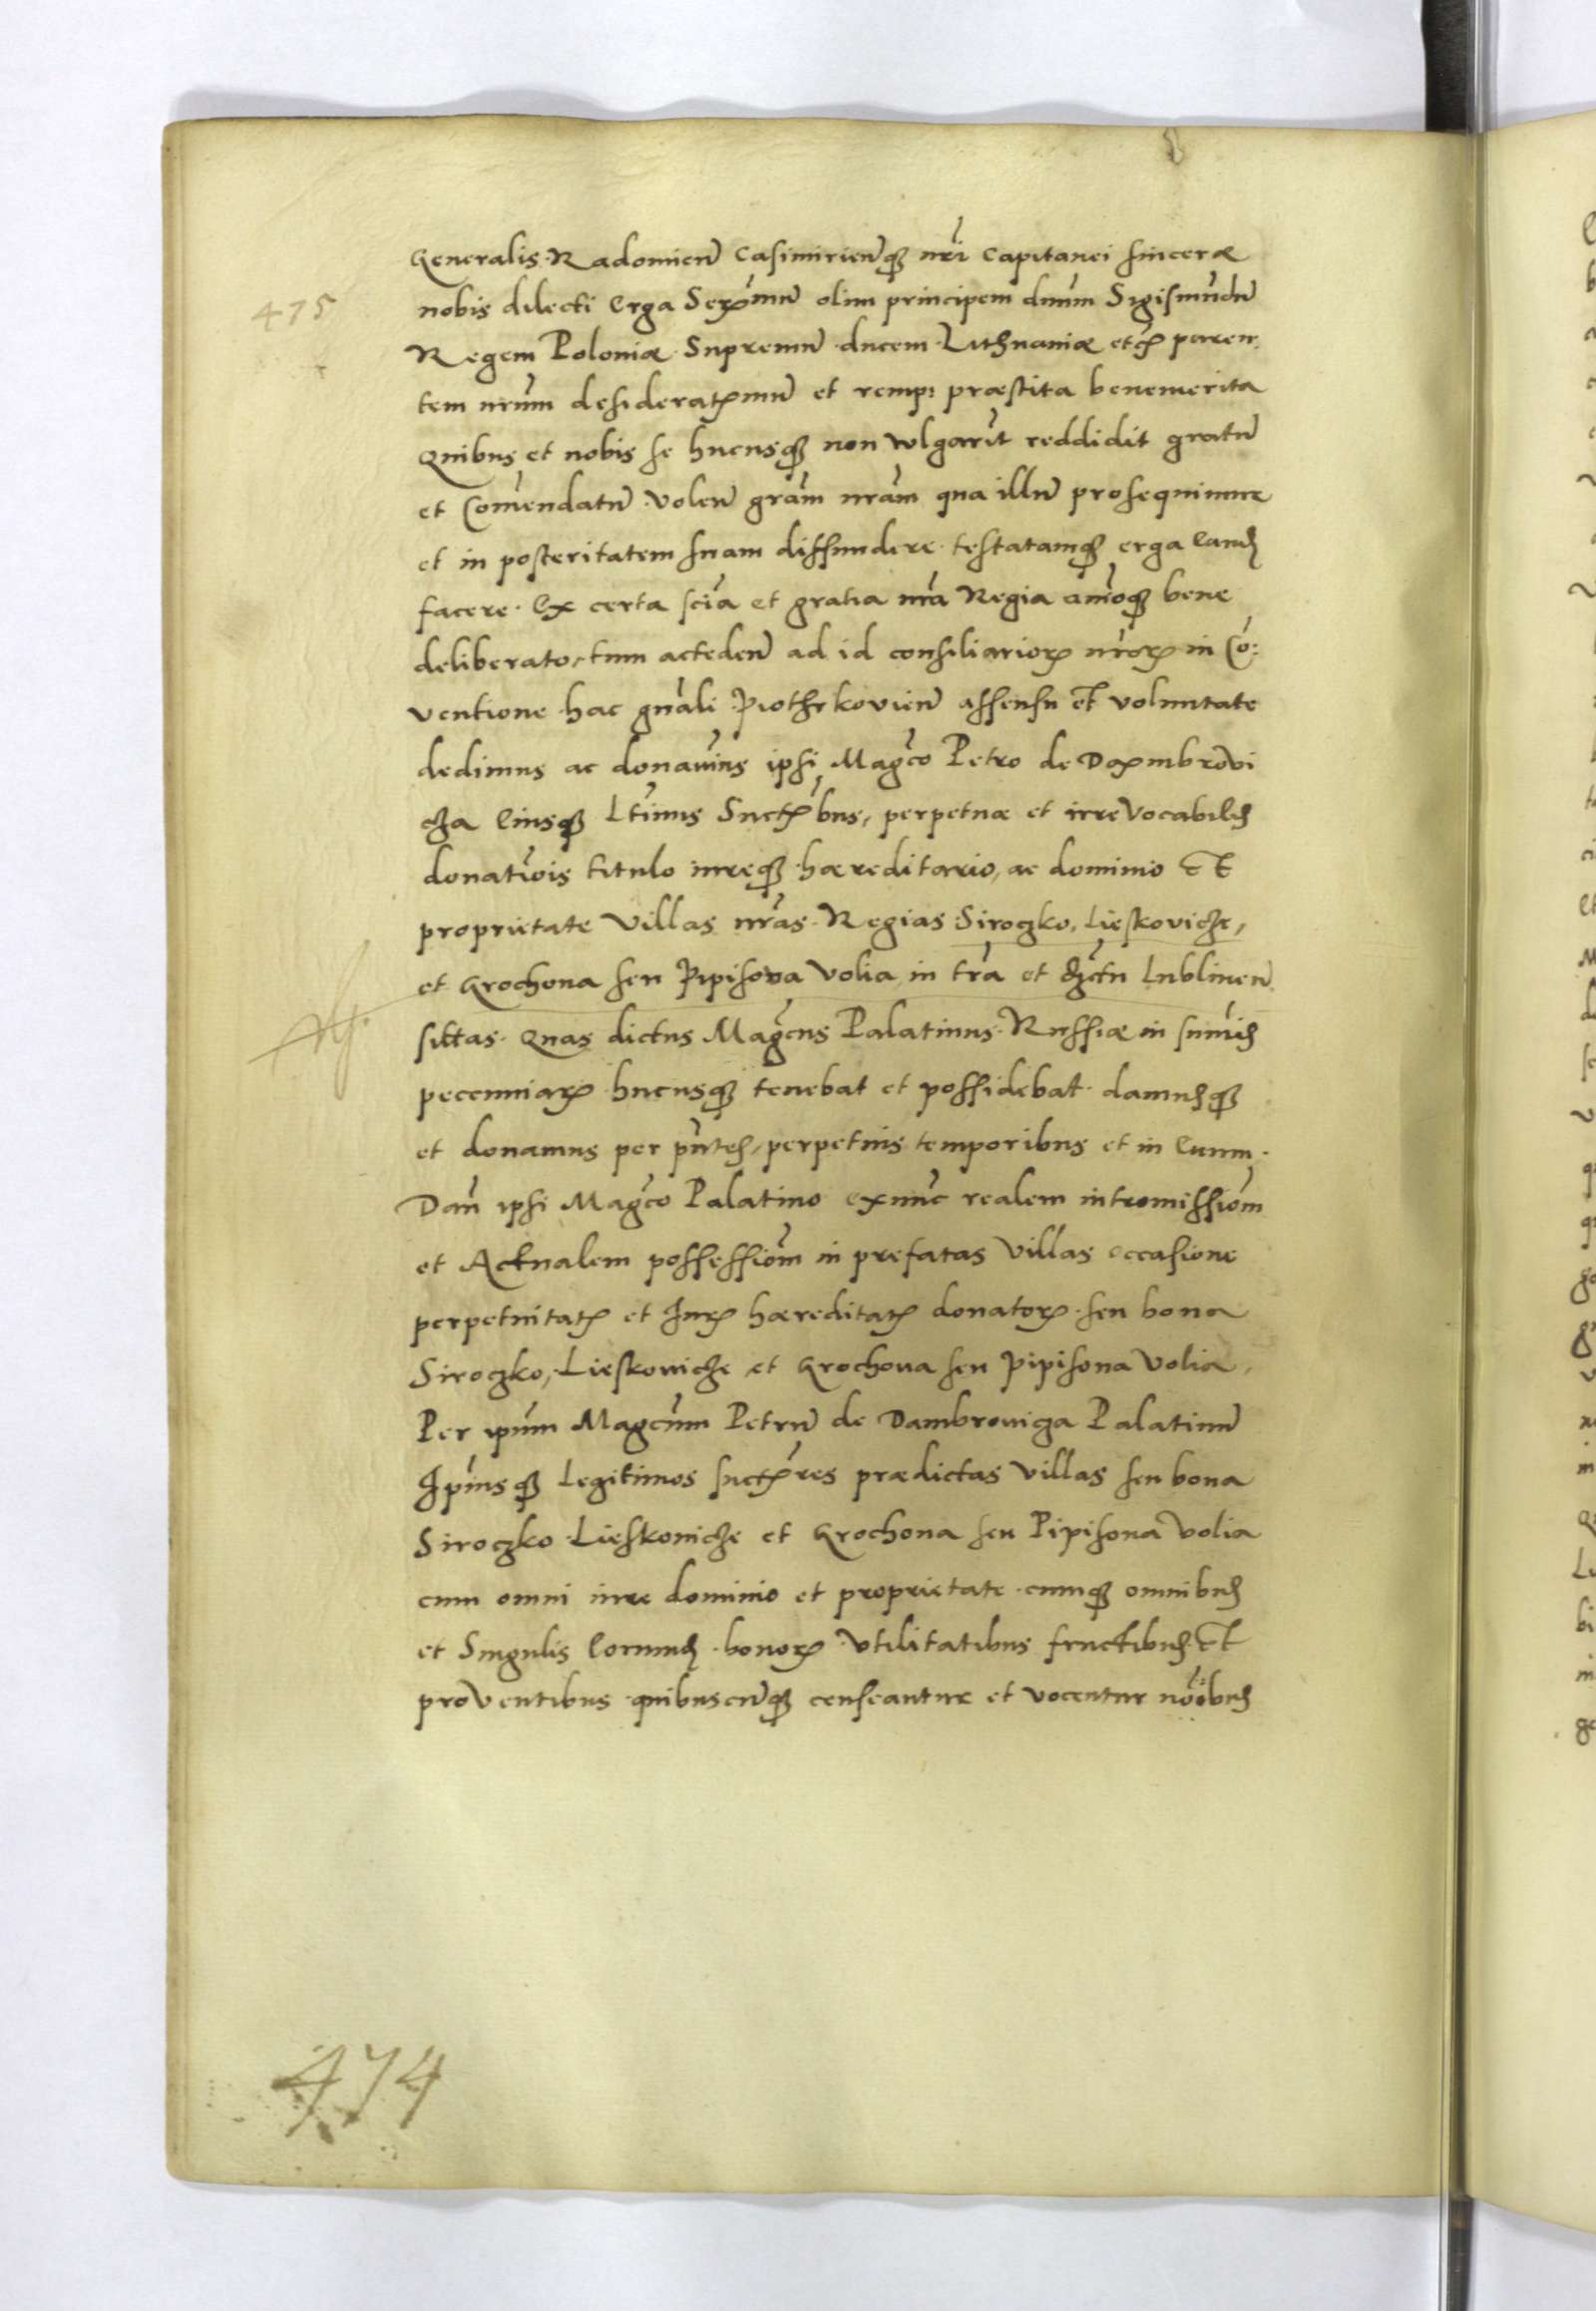 Generalis Radomień Casimirieńq₃ nr̃i Capitanei sinceræ
475
nobis dilecti Erga Ser͠mũ olim principem dnũm Sigismũdũ
Regem Poloniæ Supremũ ducem Lithuaniæ etc̃ paren
tem nrũm desideratmũ et remp: præstita benemerita
Quibus et nobis se hucusq₃ non vulgarit̃ reddidit gratũ
et Com̃endatũ volen̄ grãm nrãm qua illũ prosequimur
et in posteritatem suam diffundere testatamq₃ erga eand̃
facere. Ex certa sciã et gratia nrã Regia anĩoq₃ bene
deliberato, tum acceden̄ ad id consiliarioꝝ nrõꝝ in Cõ:
ventione hac gnãli Piothrkovien̄ assensu et voluntate
dedimus ac donavĩus ipsi Magc̃o Petro de Dambrovi
cza Eiusq₃ Ltĩmis Succ̃bus, perpetuæ et irrevocabilis
donatĩois titulo iureq₃ hæreditario, ac dominio et
proprietate Villas nrãs Regias Siroczko, Lieskovicze,
et Grochoua seu Pipisova volia, in trã et dĩctu Lublinen̄
sittas. Quas dictus Magc̃us Palatinus Russiæ in sum̃is
pecunniaꝝ hucusq₃ tenebat et possidebat. damusq₃
et donamus per pñtes, perpetuis temporibus et in Euum.
Dañ ipsi Magc̃o Palatino exnunc realem intromissiõm
et Actualem possessiõm in prefatas Villas occasione
perpetuitatꝭ et Iurꝭ hæreditatꝭ donatoꝝ seu bona
Siroczko, Lieskouicze et Grochoua seu Pipisona Volia.
Per ipũm Magcũm Petrũ de Dambrouicza Palatinũ
Ipiusq₃ Legitimos succ̃res prædictas Villas seu bona
Siroczko Lieskouicze et Grochoua seu Pipisona Volia
cum omni iure dominio et proprietate cumq₃ omnibus
et Singulis Eorumd̃ bonoꝝ Vtilitatibus fructibus et
proventibus quibuscũq₃ censeantur et vocentur nõibus
474